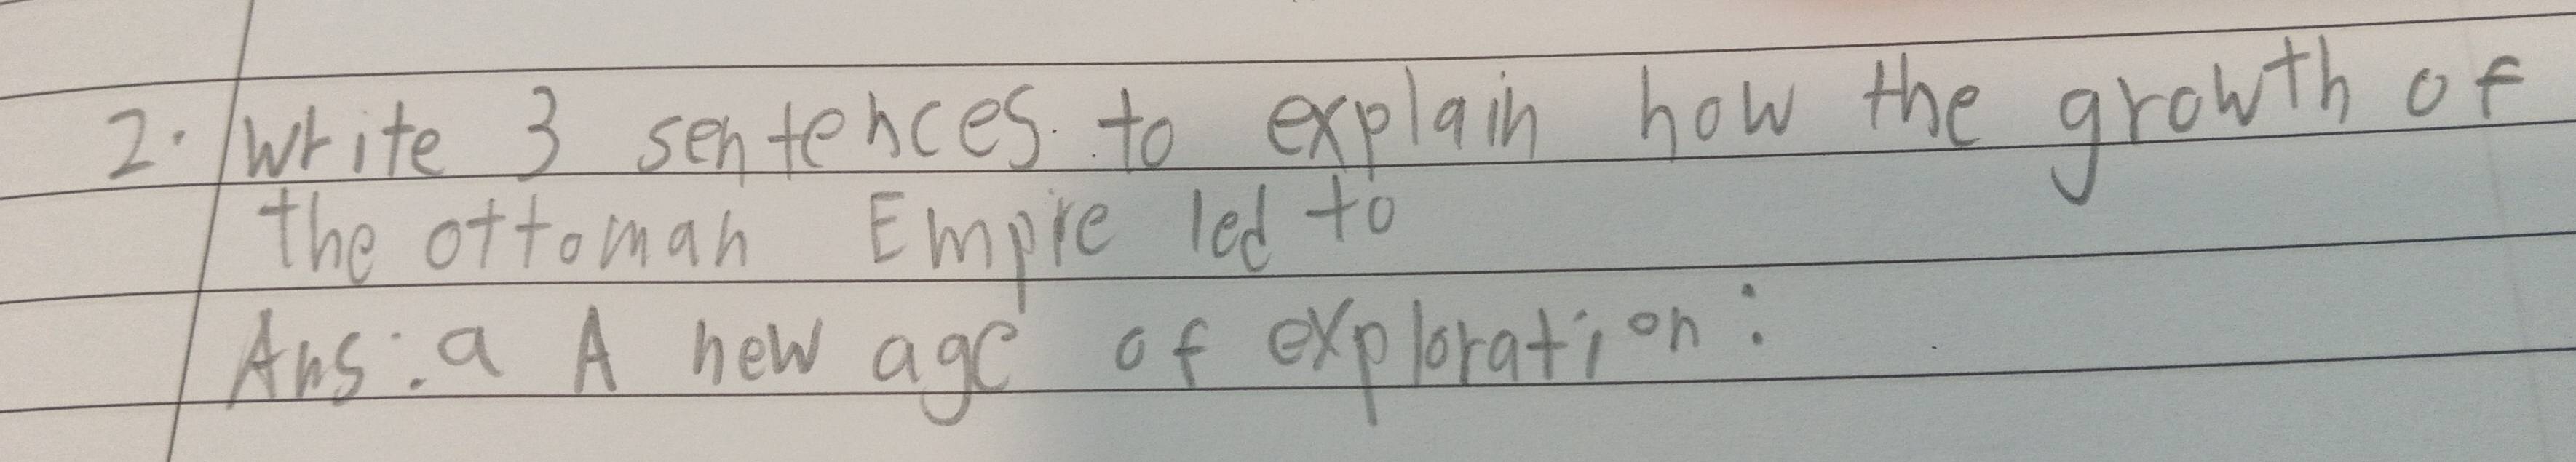 2. Write 3 sentences. to explain how the growth of
the ottoman Empire led to
Ans: a A new age of exploration: